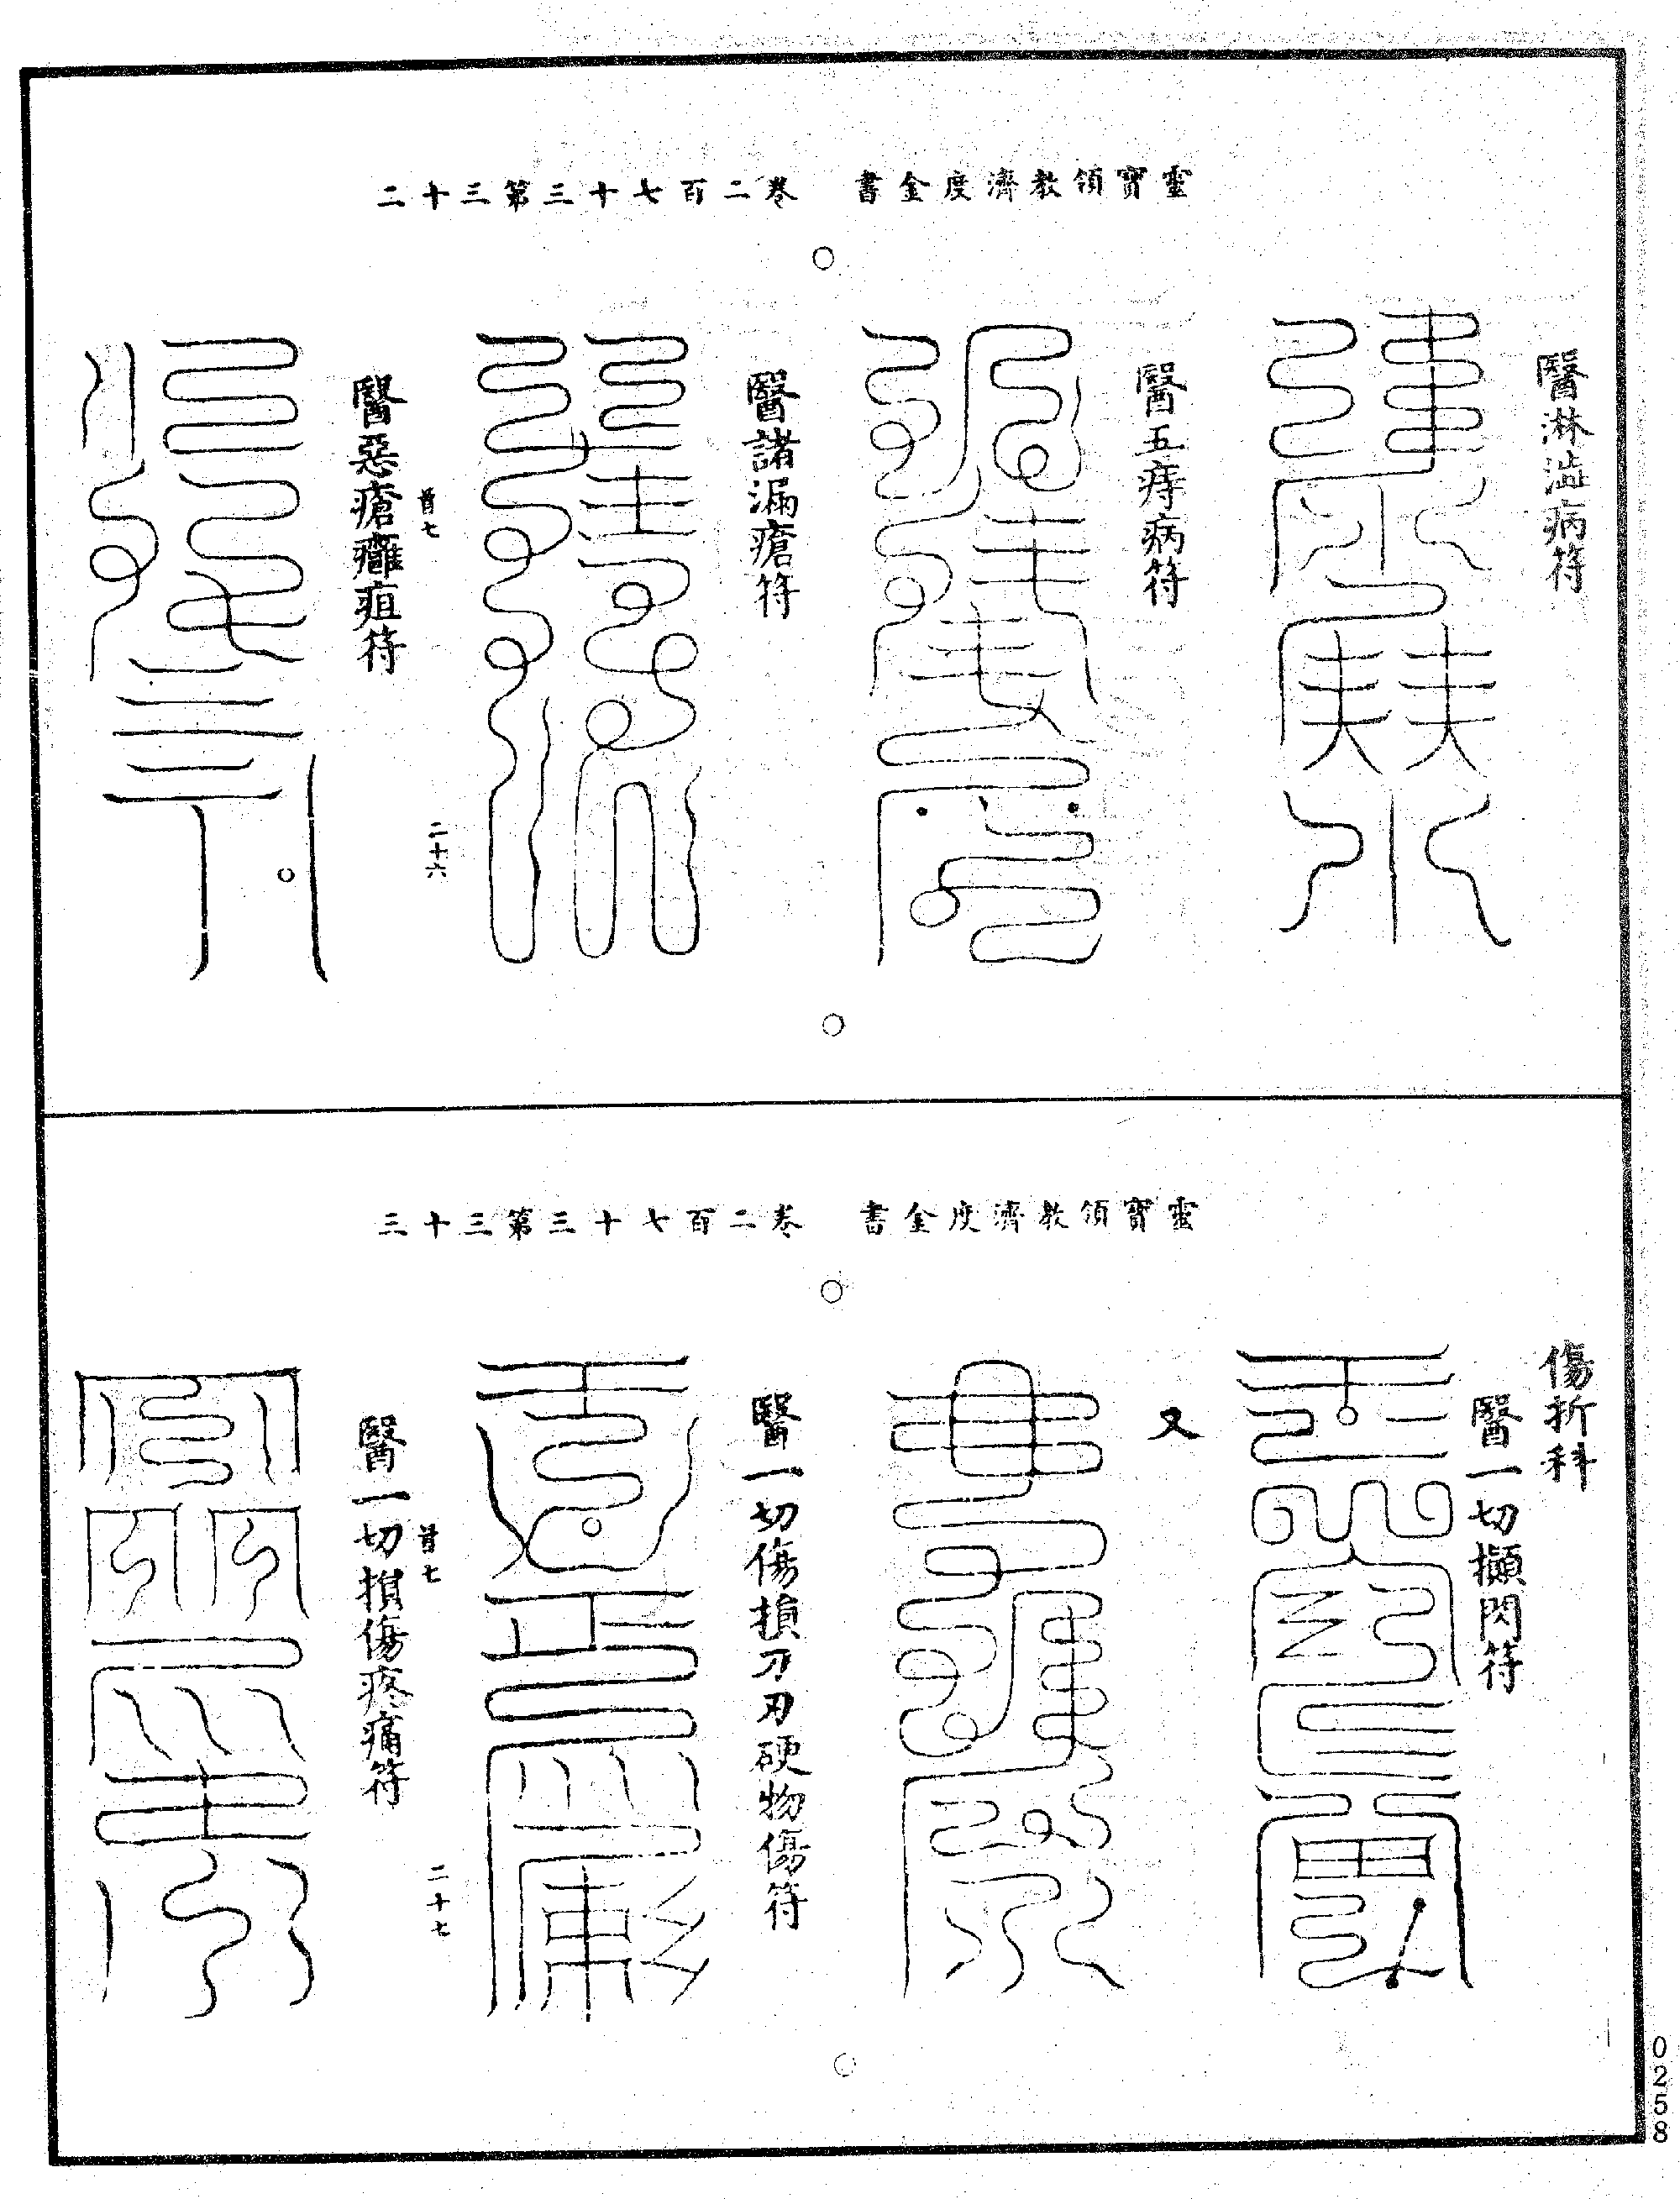 靈寶領教濟度金書　卷二百七十三第三十二
醫淋澁病符
醫五痔病符
醫諸漏瘡符
首七　二十六
醫惡瘡癰疽符
靈寶領教濟度金書　卷二百七十三第三十三
傷折科
醫一切攧閃符
又
醫一切傷損刀刃硬物傷符
首七　二十七
醫一切損傷疼痛符
0258